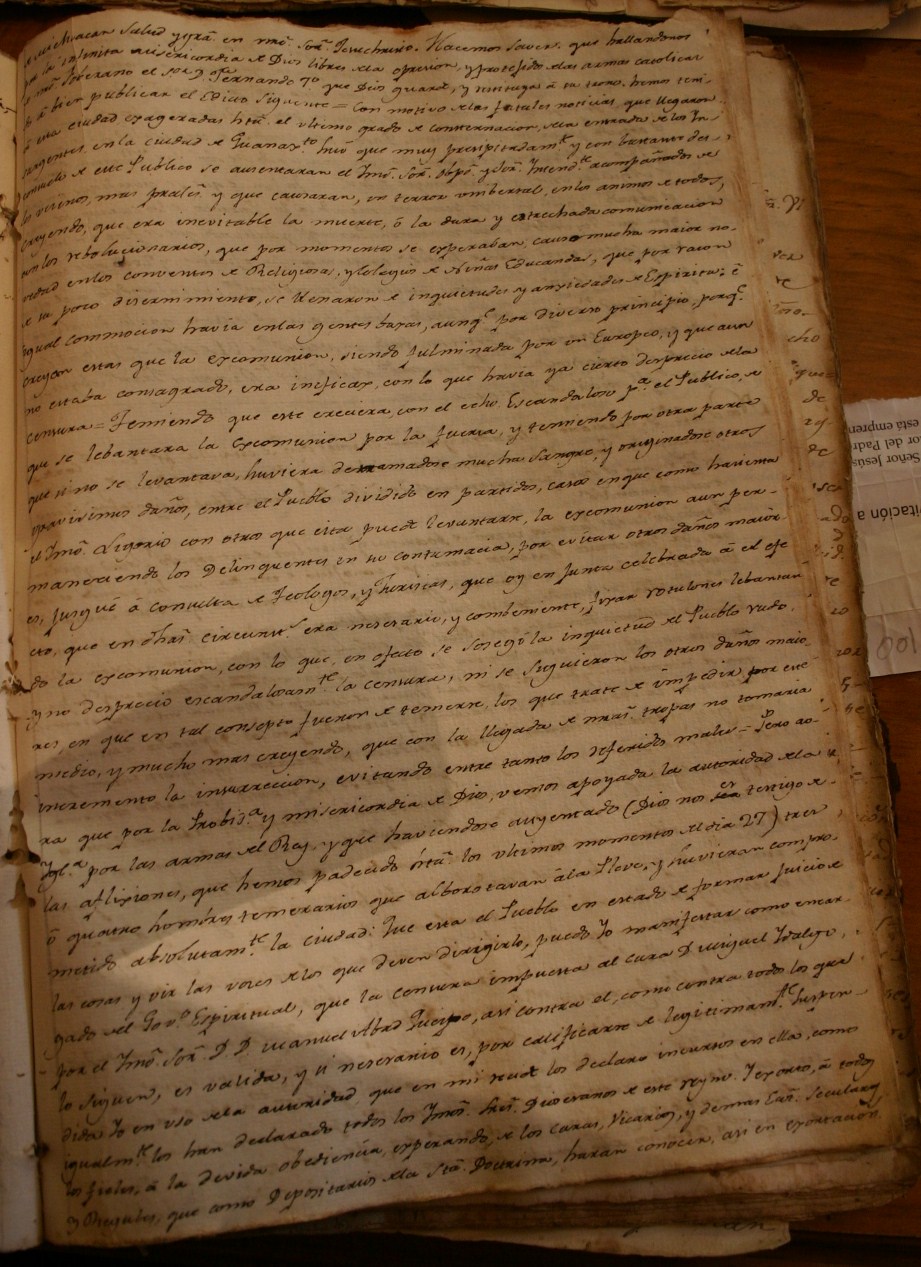 Salud y gracia en nrô. Sor. Jesuchristo. Hacemos Saver, que hallandonos
por la infinita misericordia de Dios libres de la opresion, y protejido de las armas catolicas
nrô Soverano el Sor. Dn. Fernando 7o que Dios guarde, y restituya á su trono, hemos teni-
do á bien publicar el Edicto Siguiente = Con motivo de las fatales noticias, que llegaron
á esta ciudad exageradas hta. el ultimo grado de consternacion, de la entrada de los In-
surgentes en la ciudad de Guanaxto. hizo que muy precipitadamte y con bastante des-
consuelo de este Publico se ausentaran el Ymô. Sor. Obpô. y Sor. Yntendte acompañados de
los vecinos mas prales. y que causaran, un terror unibersal, en los animos de todos,
creyendo, que era inevitable la muerte, ó la dura y estrechada comunicacion
con los rebolucionarios, que por momentos se esperaban, causo mucha maior no-
vedad en los conventos de Religiosas, y Colegio de Niñas Educandas, que por razon
de su poco discernimiento, se llenaron de inquietudes y ansiedades de Espiritu: é
igual commocion havia en las gentes baxas, aunqe. por diverso principio, porqe.
creyan estas que la excomunion, siendo fulminada por un Europeo, y que aun
no estaba consagrado, era ineficax, con lo que havia ya cierto desprecio de la
censura = Temiendo que este creciera, con el echo Escandaloso pa. el Publico, de
que se lebantara la excomunion por la fuerza, y temiendo por otra parte
que si no se levantava, huviera derramadose mucha Sangre, y originadose otros
gravisimos daños, entre el Pueblo dividido en partidos, casos en que como havienta
el Ymô. Ligorio con otros que esta puede levantarse, la excomunion aun per-
maneciendo los Delinquentes en su contumacia, por evitar otros daños maior-
es, jusgué á consulta de Teologos, y Juristas, que oy en junta celebrada á el efe
cto, que en dhas. circunsts. era nesesario, y combeniente, fixar rotulones lebantan
do la excomunion, con lo que, en efecto se sosegó la inquietud del Pueblo rudo,
y no despreció escandalosamte. la censura, ni se siguieron los otros daños maio
res, en que en tal consepto fueron de temerse, los que traté de impedir por este
medio, y mucho mas creyendo, que con la llegada de nras. tropas no tomaria
incremento la insurreccion, evitando entre tanto los referidos males = Pero ao-
ra que por la Probisa. y misericordia de Dios, vemos apoyada la autoridad de la
Ygla. por las armas del Rey, y que haviendose auyentado (Dios nos es testigo de
las aflixiones, que hemos padecido hta. los ultimos momentos del dia 27) tres
ó quatro hombres temerarios que alborotavan á la Pleve, y huvieran compro-
metido absolutamte. la ciudad: Que esta el Pueblo en estado de formar juicio de
las cosas y oir las voces de los que deven dirigirlo, puedo Yo manifestar como encar-
gado del Govo. Espiritual, que la censura impuesta al cura D. Miguel Ydalgo,
por el Ymô. Sor. D. D. Manuel Abad Queipo, asi contra el, como contra todos los que
lo siguen, es valida, y si nesesario es, por calificarse de legitimamte. Suspen-
dida Yo en uso de la autoridad que en mi recide los declaro incursos en ella, como
igualmte. los han declarado todos los Ymôs. Sres. Diocesanos de este reyno. Y exorto, á todos
los fieles, á la devida obediencia, esperando, de los curas, Vicarios, y demas Ecos. Seculares
y Regulares, que como Depositarios de la Sta. Doctrina, haran conocer, asi en exortacion